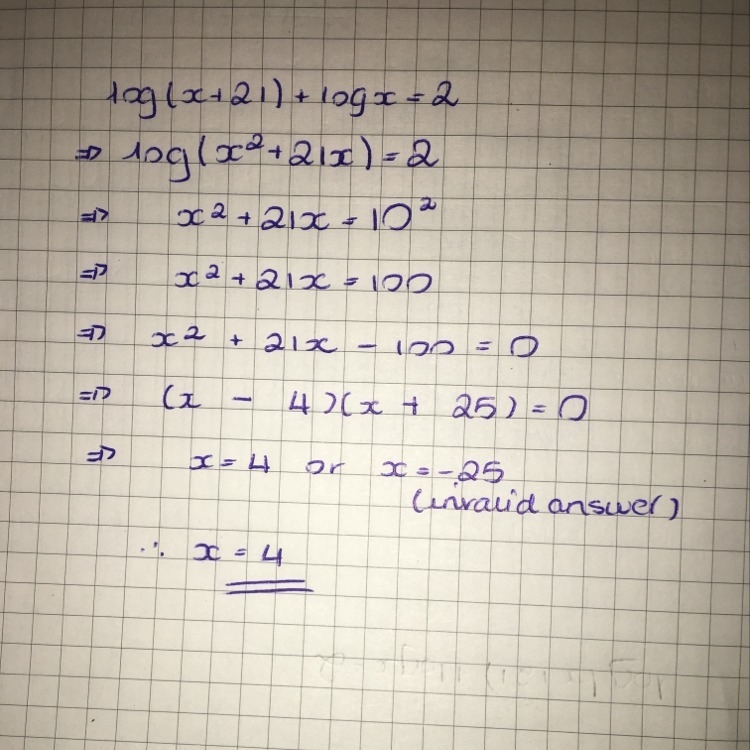 log(x+21) + logx = 2
⇒ log(x²+21x) = 2
⇒ x² + 21x = 10²
⇒ x² + 21x = 100
⇒ x² + 21x - 100 = 0
⇒ (x - 4)(x + 25) = 0
⇒ x = 4 or x = -25
(invalid answer)
∴ x = 4